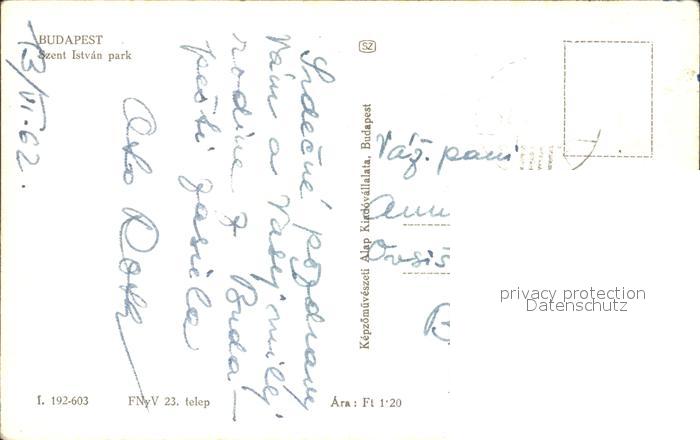 BUDAPEST
Szent István park
13/VI-62.
Srdečné pozdravy
Vám a Vašej milej
rodine z Buda-
pešti zasiela
Roth
Képzőművészeti Alap Kiadóvállalata, Budapest
SZ
Váž. pani
privacy protection
Datenschutz
I. 192-603
FNyV 23. telep
Ára: Ft 1·20